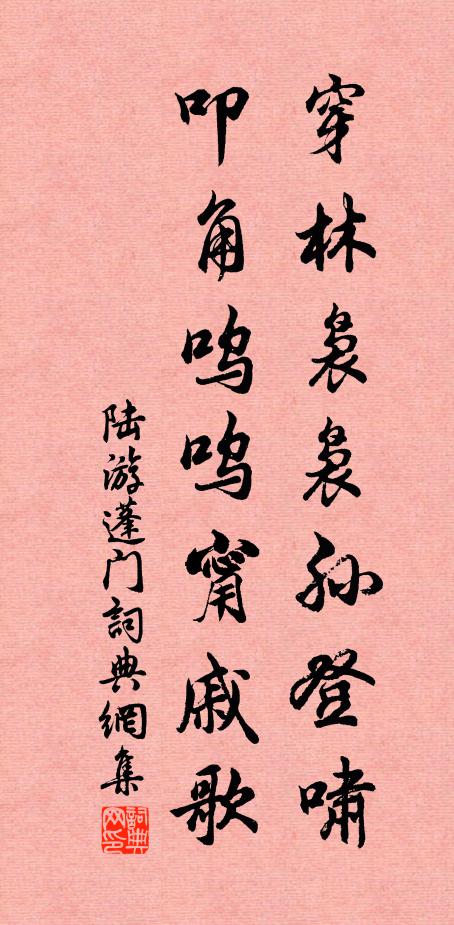 穿林袅袅孙登啸
叩角呜呜甯戚歌
陆游蓬门詞典網集
詞典网印